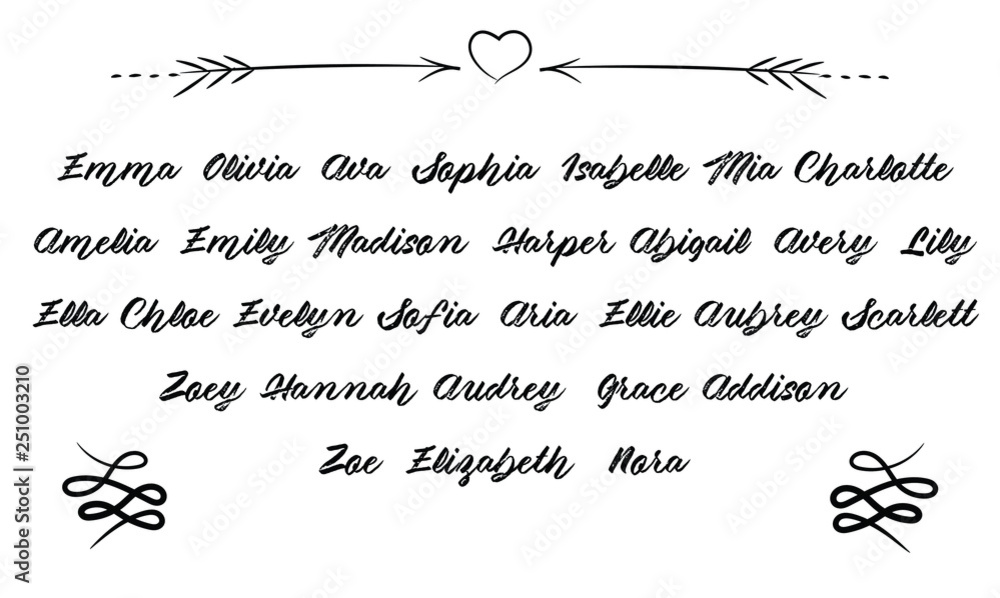 Emma Olivia Ava Sophia Isabelle Mia Charlotte
Amelia Emily Madison Harper Abigail Avery Lily
Ella Chloe Evelyn Sofia Aria Ellie Aubrey Scarlett
Zoey Hannah Audrey Grace Addison
Zoe Elizabeth Nora
Adobe Stock | #251003210